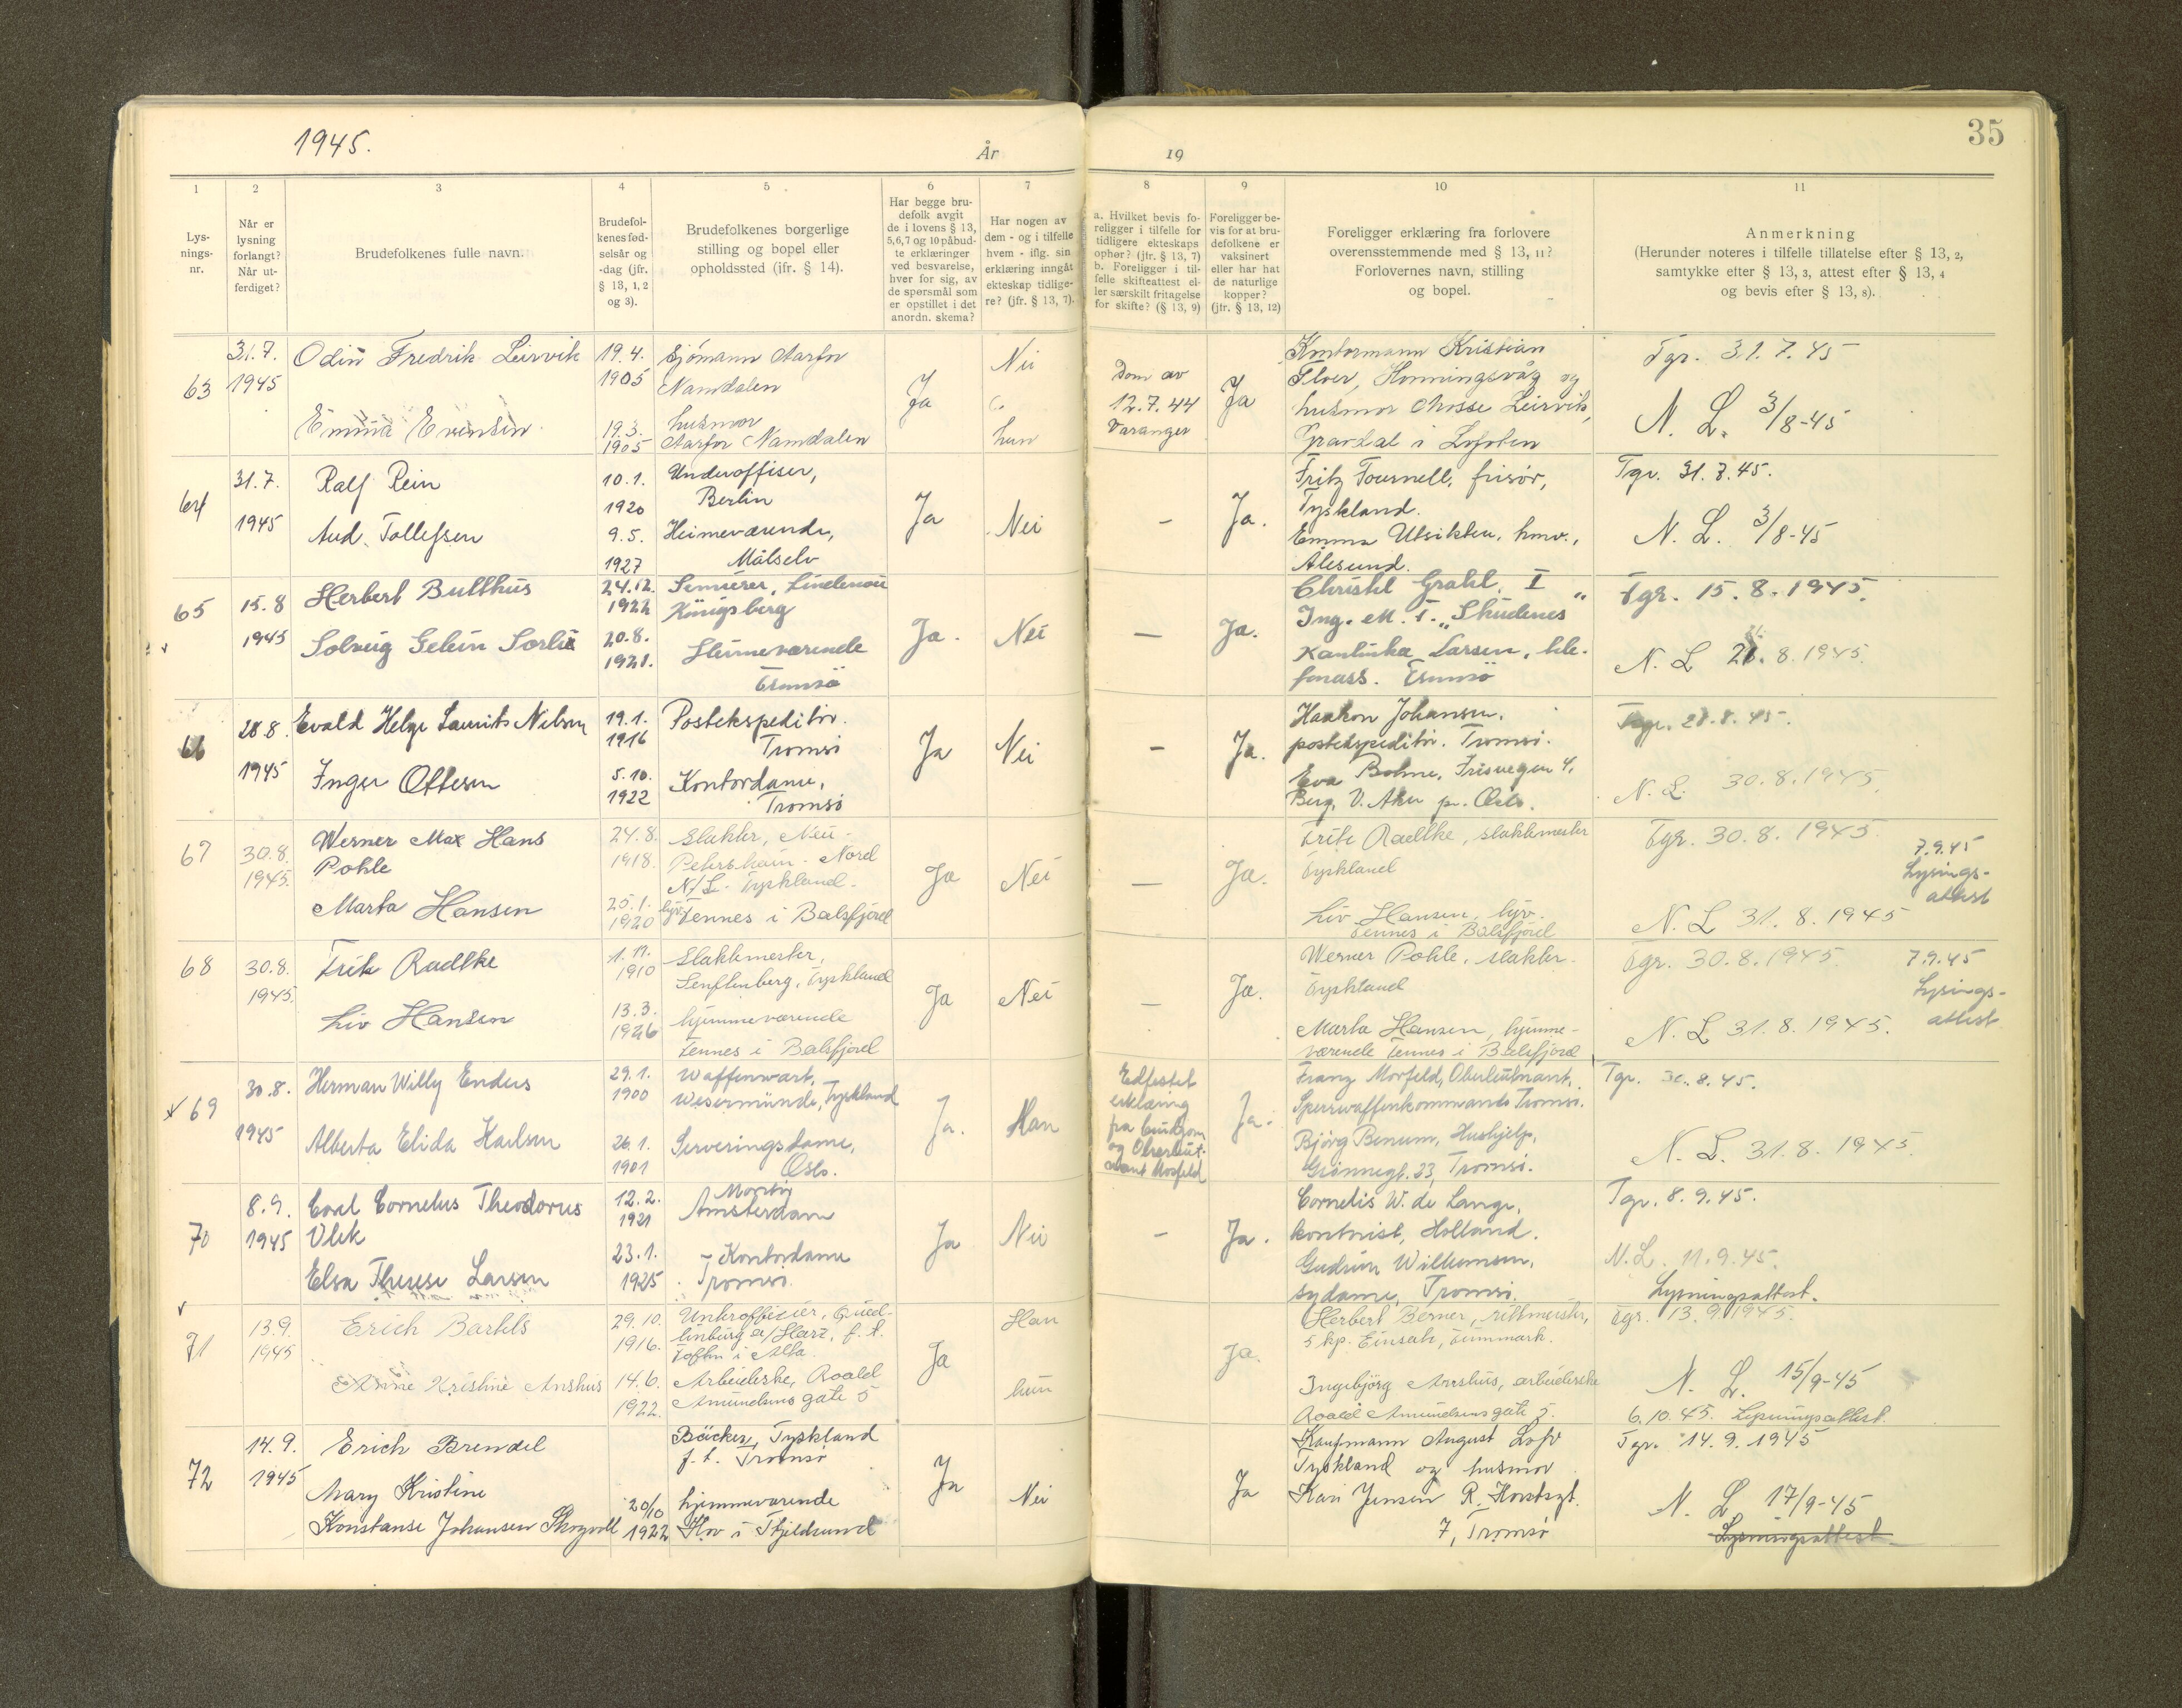 1945.
År
19
35
1
2
3
4
5
6
7
8
9
10
11
Lys-
nings-
nr.
Når er
lysning
forlangt?
Når ut-
ferdiget?
Brudefolkenes fulle navn.
Brudefol-
kenes fød-
selsår og
-dag (jfr.
§ 13, 1, 2
og 3).
Brudefolkenes borgerlige
stilling og bopel eller
opholdssted (ifr. § 14).
Har begge bru-
defolk avgit
de i lovens § 13,
5,6,7 og 10 påbud-
te erklæringer
ved besvarelse,
hver for sig, av
de spørsmål som
er opstillet i det
anordn. skema?
Har nogen av
dem - og i tilfelle
hvem - iflg. sin
erklæring inngått
ekteskap tidlige-
re? (jfr. § 13, 7).
a. Hvilket bevis fo-
religger i tilfelle for
tidligere ekteskaps
ophør? (jfr. § 13, 7)
b. Foreligger i til-
felle skifteattest el-
ler særskilt fritagelse
for skifte? (§ 13, 9)
Foreligger be-
vis for at bru-
defolkene er
vaksinert
eller har hat
de naturlige
kopper?
(jfr. § 13, 12)
Foreligger erklæring fra forlovere
overensstemmende med § 13, 11?
Forlovernes navn, stilling
og bopel.
Anmerkning
(Herunder noteres i tilfelle tillatelse efter § 13, 2,
samtykke efter § 13, 3, attest efter § 13, 4
og bevis efter § 13, 8).
63
31.7.
1945
Odin Fredrik Leirvik
Emma Evensen
19.4.
1905
19.3.
1905
Sjømann Aarfor
Namdalen
husmor
Aarfor Namdalen
Ja
Nei
hun
Dom av
12.7.44
Varanger
Ja
Kontormann Kristian
Floer, Honningsvåg og
husmor Mosse Leirvik,
Gravdal i Lofoten
Tgr. 31.7.45
N. L. 3/8-45
64
31.7.
1945
Ralf Rein
Aud Tollefsen
10.1.
1920
9.5.
1927
Underoffiser,
Berlin
Heimeværende,
Målselv
Ja
Nei
-
Ja.
Fritz Fournell, frisør,
Tyskland.
Emma Utsikten, hmv.,
Ålesund.
Tgr. 31.7.45.
N. L. 3/8-45
65
15.8
1945
Herbert Bulthus
Solveig Gelein Sørli
24.12.
1922
20.8.
1921.
Lindenau
Königsberg
Heimeværende
Tromsö
Ja.
Nei
—
Ja.
Christel Grahl, I
Ing. M. T. "Skudenes"
Kantinka Larsen, tele-
fonass. Tromsö
Tgr. 15.8.1945.
N. L 21.8.1945.
66
28.8.
1945
Evald Helge Laurits Nilsen
Inger Ottesen
19.1.
1916
5.10.
1922
Postekspeditør.
Tromsø
Kontordame,
Tromsø
Ja
Nei
-
Ja.
Haakon Johansen,
postekspeditør. Tromsø.
Eva Bohne, Frisvegen 4,
Berg, V. Aker pr. Oslo.
Tgr. 28.8.45.
N. L. 30.8.1945.
67
30.8.
1945.
Werner Max Hans
Pohle
Marta Hansen
24.8.
1918.
25.1.
1920
Slakter, Neu-
Petershain - Nord
N/L. Tyskland.
hjv. Tennes i Balsfjord
Ja
Nei
—
Ja.
Fritz Radtke, slaktemester
Tyskland
Liv Hansen, hjv.
Tennes i Balsfjord
Tgr. 30.8.1945.
N. L 31.8.1945
7.9.45
Lysings-
attest
68
30.8.
1945.
Fritz Radtke
Liv Hansen
1.11.
1910
13.3.
1926
Slaktemester,
Senftenberg, Tyskland
hjemmeværende
Tennes i Balsfjord
Ja
Nei
—
Ja.
Werner Pohle, slakter.
Tyskland
Marta Hansen, hjemme-
værende Tennes i Balsfjord
Tgr. 30.8.1945.
N. L 31.8.1945.
7.9.45
Lysings-
attest
69
30.8.
1945
Herman Willy Enders
Alberta Elida Karlsen
29.1.
1900
26.1.
1901
Waffenwart,
Wesermünde, Tyskland
Serveringsdame,
Oslo.
Ja.
Han
Edfestet
erklæring
fra brudgom
og Oberleut-
nant Morfeld
Ja.
Franz Morfeld, Oberleutnant,
Sperrwaffenkommando Tromsø.
Bjørg Benum, Hushjelp,
Grønnegt. 23, Tromsø.
Tgr. 30.8.45.
N. L. 31.8.1945.
70
8.9.
1945
Carl Cornelus Theodorus
Vlek
Elsa Therese Larsen
12.2.
1921
23.1.
1925
Montör
Amsterdam
Kontordame
Tromsø.
Ja
Nei
-
Ja.
Cornelis W. de Lange,
kontorist, Holland.
Gudrun Willumsen,
sydame, Tromsø.
Tgr. 8.9.45.
N.L. 11.9.45.
Lysningsattest.
71
13.9.
1945
Erich Bartels
Anne Kristine Anshus
29.10.
1916.
14.6.
1922.
Unteroffizier, Qued-
linburg a/Harz, f. t.
Toften i Alta.
Arbeiderske, Roald
Amundsens gate 5
Ja
Han
hun
Ja.
Herbert Berner, rittmeister,
5 kp. Einsatz, Finnmark.
Ingebjörg Anshus, arbeiderske
Roald Amundsens gate 5.
Tgr. 13.9.1945.
N. L. 15/9-45
6.10.45. Lysningsattest.
72
14.9.
1945
Erich Brendel
Mary Kristine
Konstanse Johansen Skogvoll
20/10
1922
Bäcker, Tyskland
f. t. Tromsø
hjemmeværende
Hov i Tjeldsund
Ja
Nei
Ja
Kaufmann August Lofv
Tyskland og husmor
Kari Jensen R. Horstsgt.
7, Tromsø
Tgr. 14.9.1945
N. L. 17/9-45
Lysningsattest